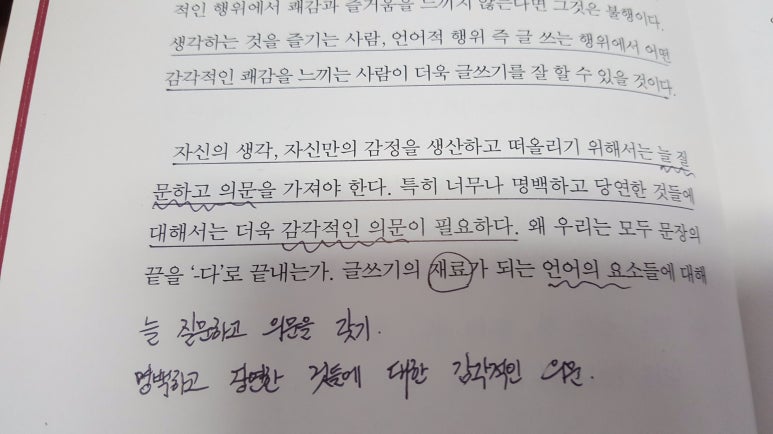 적인 행위에서 쾌감과 즐거움을 느끼지 않는다면 그것은 불행이다.
생각하는 것을 즐기는 사람, 언어적 행위 즉 글 쓰는 행위에서 어떤
감각적인 쾌감을 느끼는 사람이 더욱 글쓰기를 잘 할 수 있을 것이다.
자신의 생각, 자신만의 감정을 생산하고 떠올리기 위해서는 늘 질
문하고 의문을 가져야 한다. 특히 너무나 명백하고 당연한 것들에
대해서는 더욱 감각적인 의문이 필요하다. 왜 우리는 모두 문장의
끝을 ‘-다’로 끝내는가. 글쓰기의 재료가 되는 언어의 요소들에 대해
늘 질문하고 의문을 갖기.
명백하고 당연한 것들에 대한 감각적인 의문.